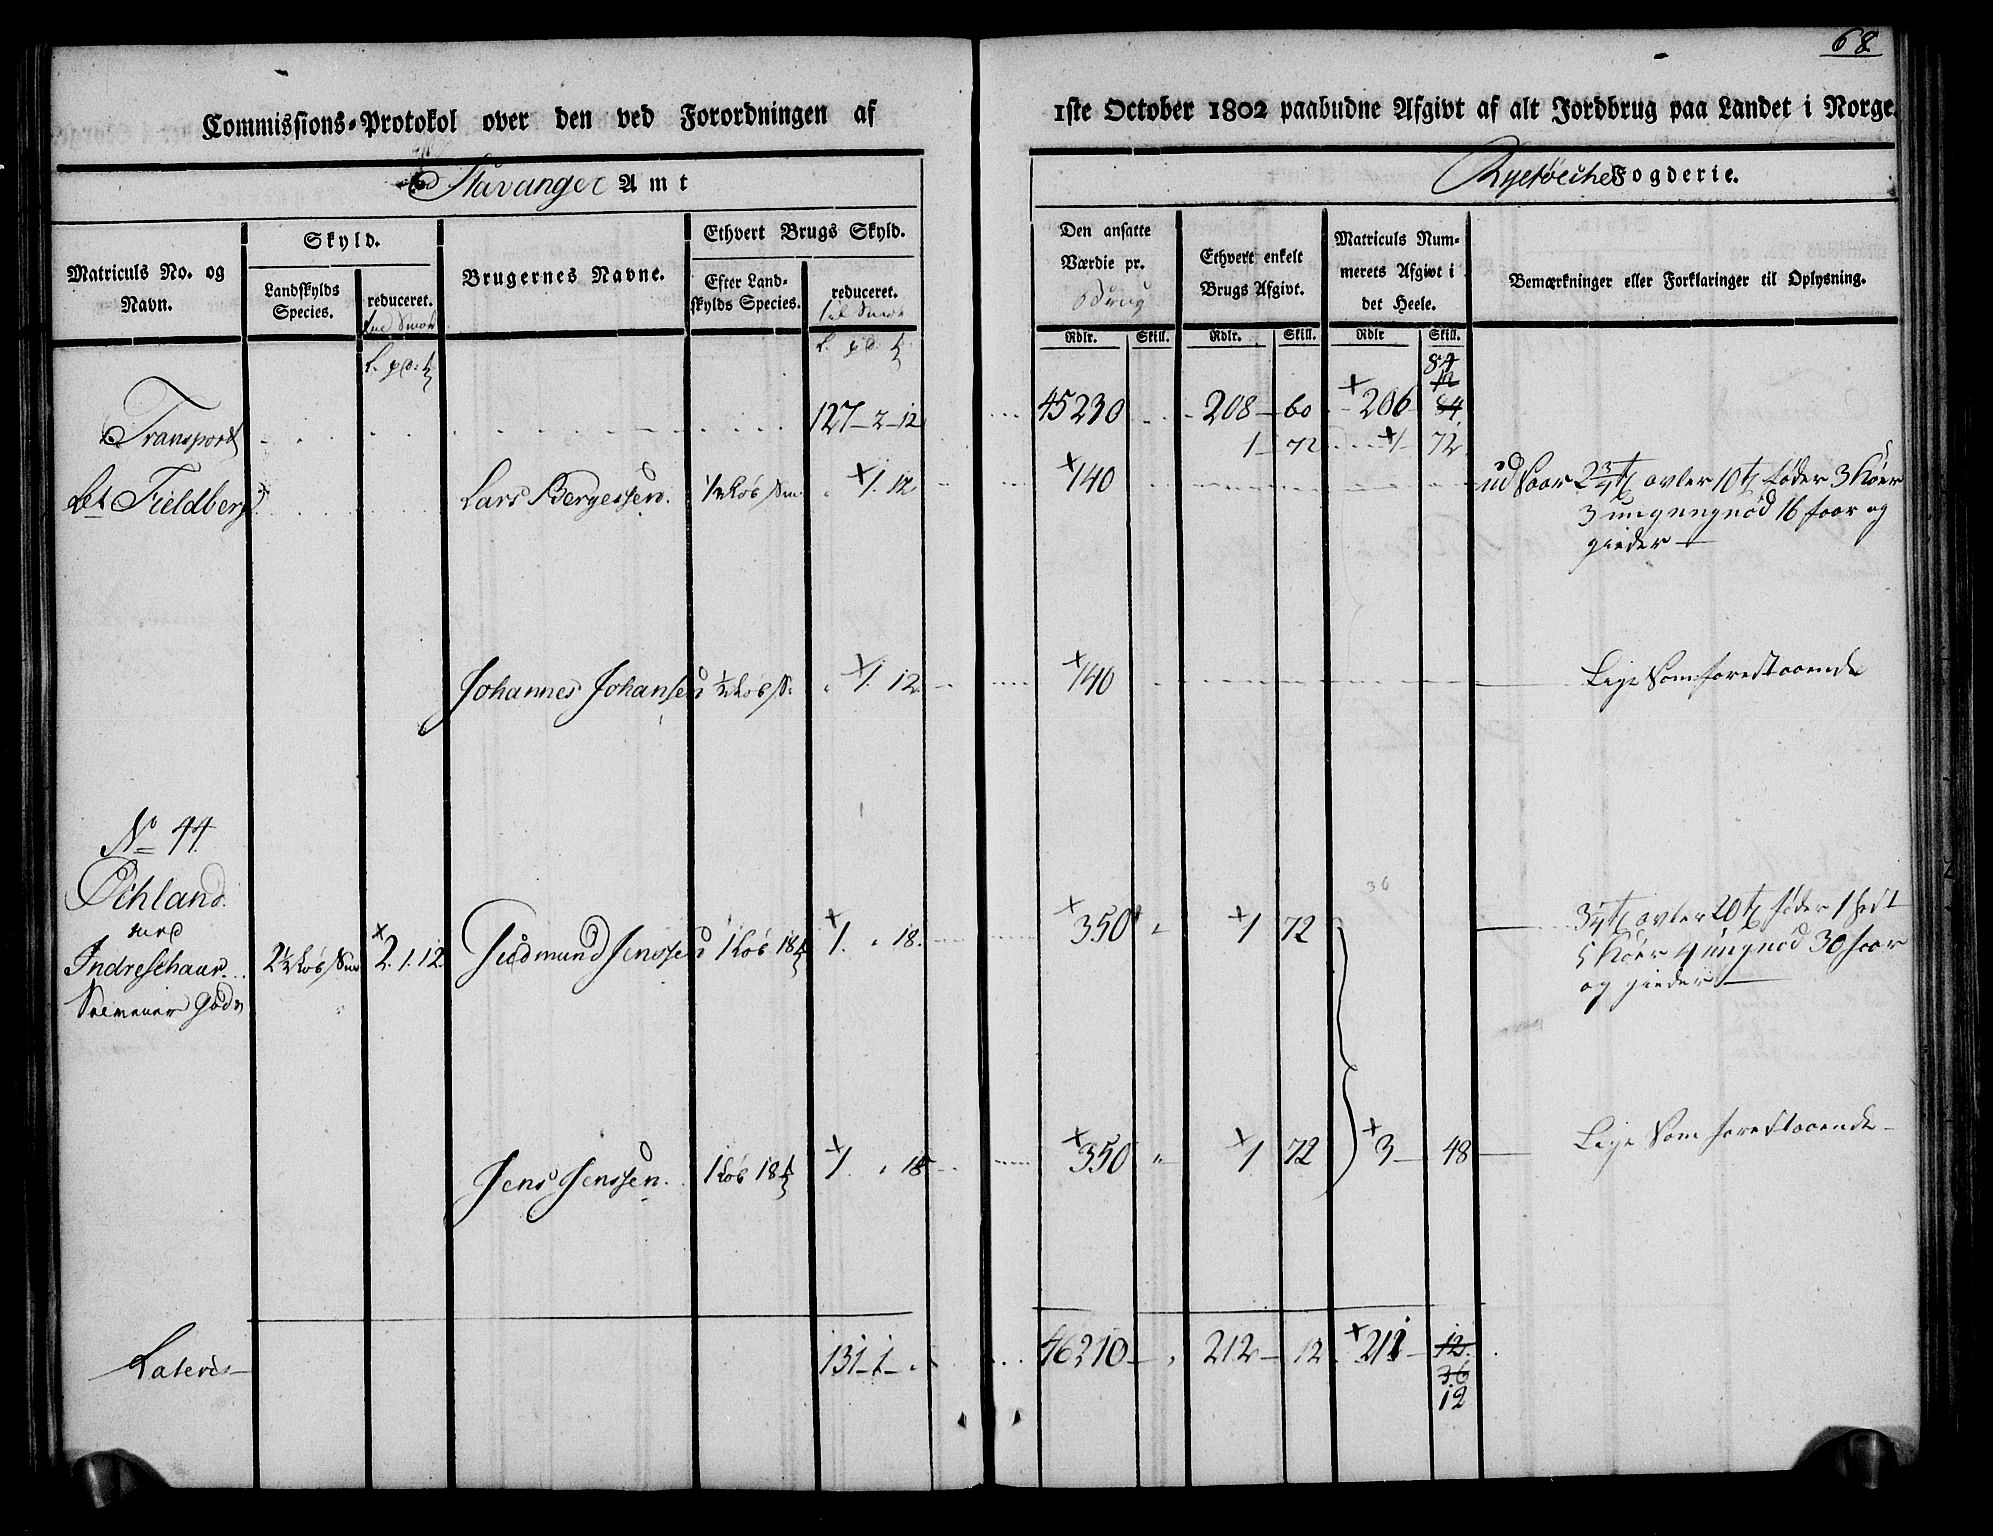 68
Commissions-Protokol over den ved Forordningen af
1ste October 1802 paabudne Afgivt af alt Jordbrug paa Landet i Norge.
Stavanger Amt
Ryefølche Fogderie.
Matriculs No. og Navn.
Skyld.
Landskylds Species.
reduceret.
Brugernes Navne.
Ethvert Brugs Skyld.
Efter Landskylds Species.
reduceret.
Den ansatte Værdie pr. Brug
Ethvert enkelt Brugs Afgivt.
Matriculs Nummerets Afgivt i det Heele.
Bemærkninger eller Forklaringer til Oplysning.
Rdlr. Skill. Rdlr. Skill. Rdlr Skill.
84
12
Transport 127 - 2 - 12 45230 208 - 60 206 84
1 - 72 1 72
Fieldberg Lars Bergessen. 1/2 Løb Sm 1. 12 140 udsaar 2 3/4 t avler 10 t føder 3 Køer
3 ungnød 16 faar og
gieder
Johannes Johansen 1/2 Løb S: 1. 12 140 Lige Som forestaaende
No 44
Øchland
med
Indreschaar 2 1/2 Løb Sm 2. 1. 12. Gudmund Jenssen 1 Løb 18 1. " 18. 350 " 1 72 3 1/4 t avler 20 t føder 1 hest
36
5 Køer 4 ungnød 30 faar
og gieder
Jens Jenssen. 1 Løb 18 1. " 18 350 " 1 72 3 48 Lige Som forestaaende
Lateris 131 - 1 - " 46210 " 212 - 12 211 12
36
12